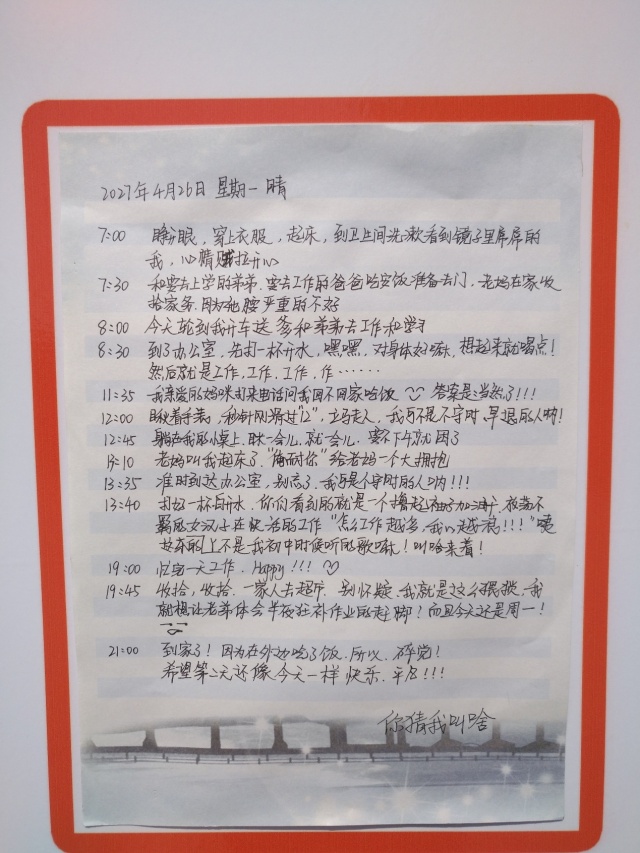 2027年4月26日 星期一 晴
7:00 睁眼，穿上衣服，起床，到卫生间洗漱看到镜子里屌屌的
我，心情开心
7:30 和要去上学的弟弟、要去工作的爸爸吃安饭准备去门，老妈在家收
拾家务，因为她腰严重的不好
8:00 今天轮到我开车送爹和弟弟去工作和学习
8:30 到了办公室，先打一杯开水，嘿嘿，对身体好嘛，想起来就喝点！
然后就是工作，工作，工作，作……
11:35 我亲爱的妈咪打来电话问我回不回家吃饭 答案是：当然了！！！
12:00 瞅着手表，秒针刚滑过"12"，立马走人，我可不是不守时，早退的人哟！
12:45 躺在我的小桌上，眯一会儿，就一会儿，要不下午就困了
13:10 老妈叫我起床了，"俺耐你"给老妈一个大拥抱
13:35 准时到达办公室，别忘了，我可是个守时的人呦！！！
13:40 打好一杯白开水，你们看到的就是一个撸起袖子加油干，放荡不
羁的女汉子在快活的工作"怎么工作越多，我心越浪！！！"咦
这东的上不是我初中时候听的歌嘛！叫啥来着！
19:00 忙完一天工作，Happy！！！
19:45 收拾，收拾，一家人去超市，别怀疑，我就是这么猥琐，我
就想让老弟体会半夜狂补作业的赶脚！而且今天还是周一！
21:00 到家了！因为在外边吃了饭，所以，碎觉！
希望第二天还像今天一样快乐，平凡！！！
你猜我叫啥